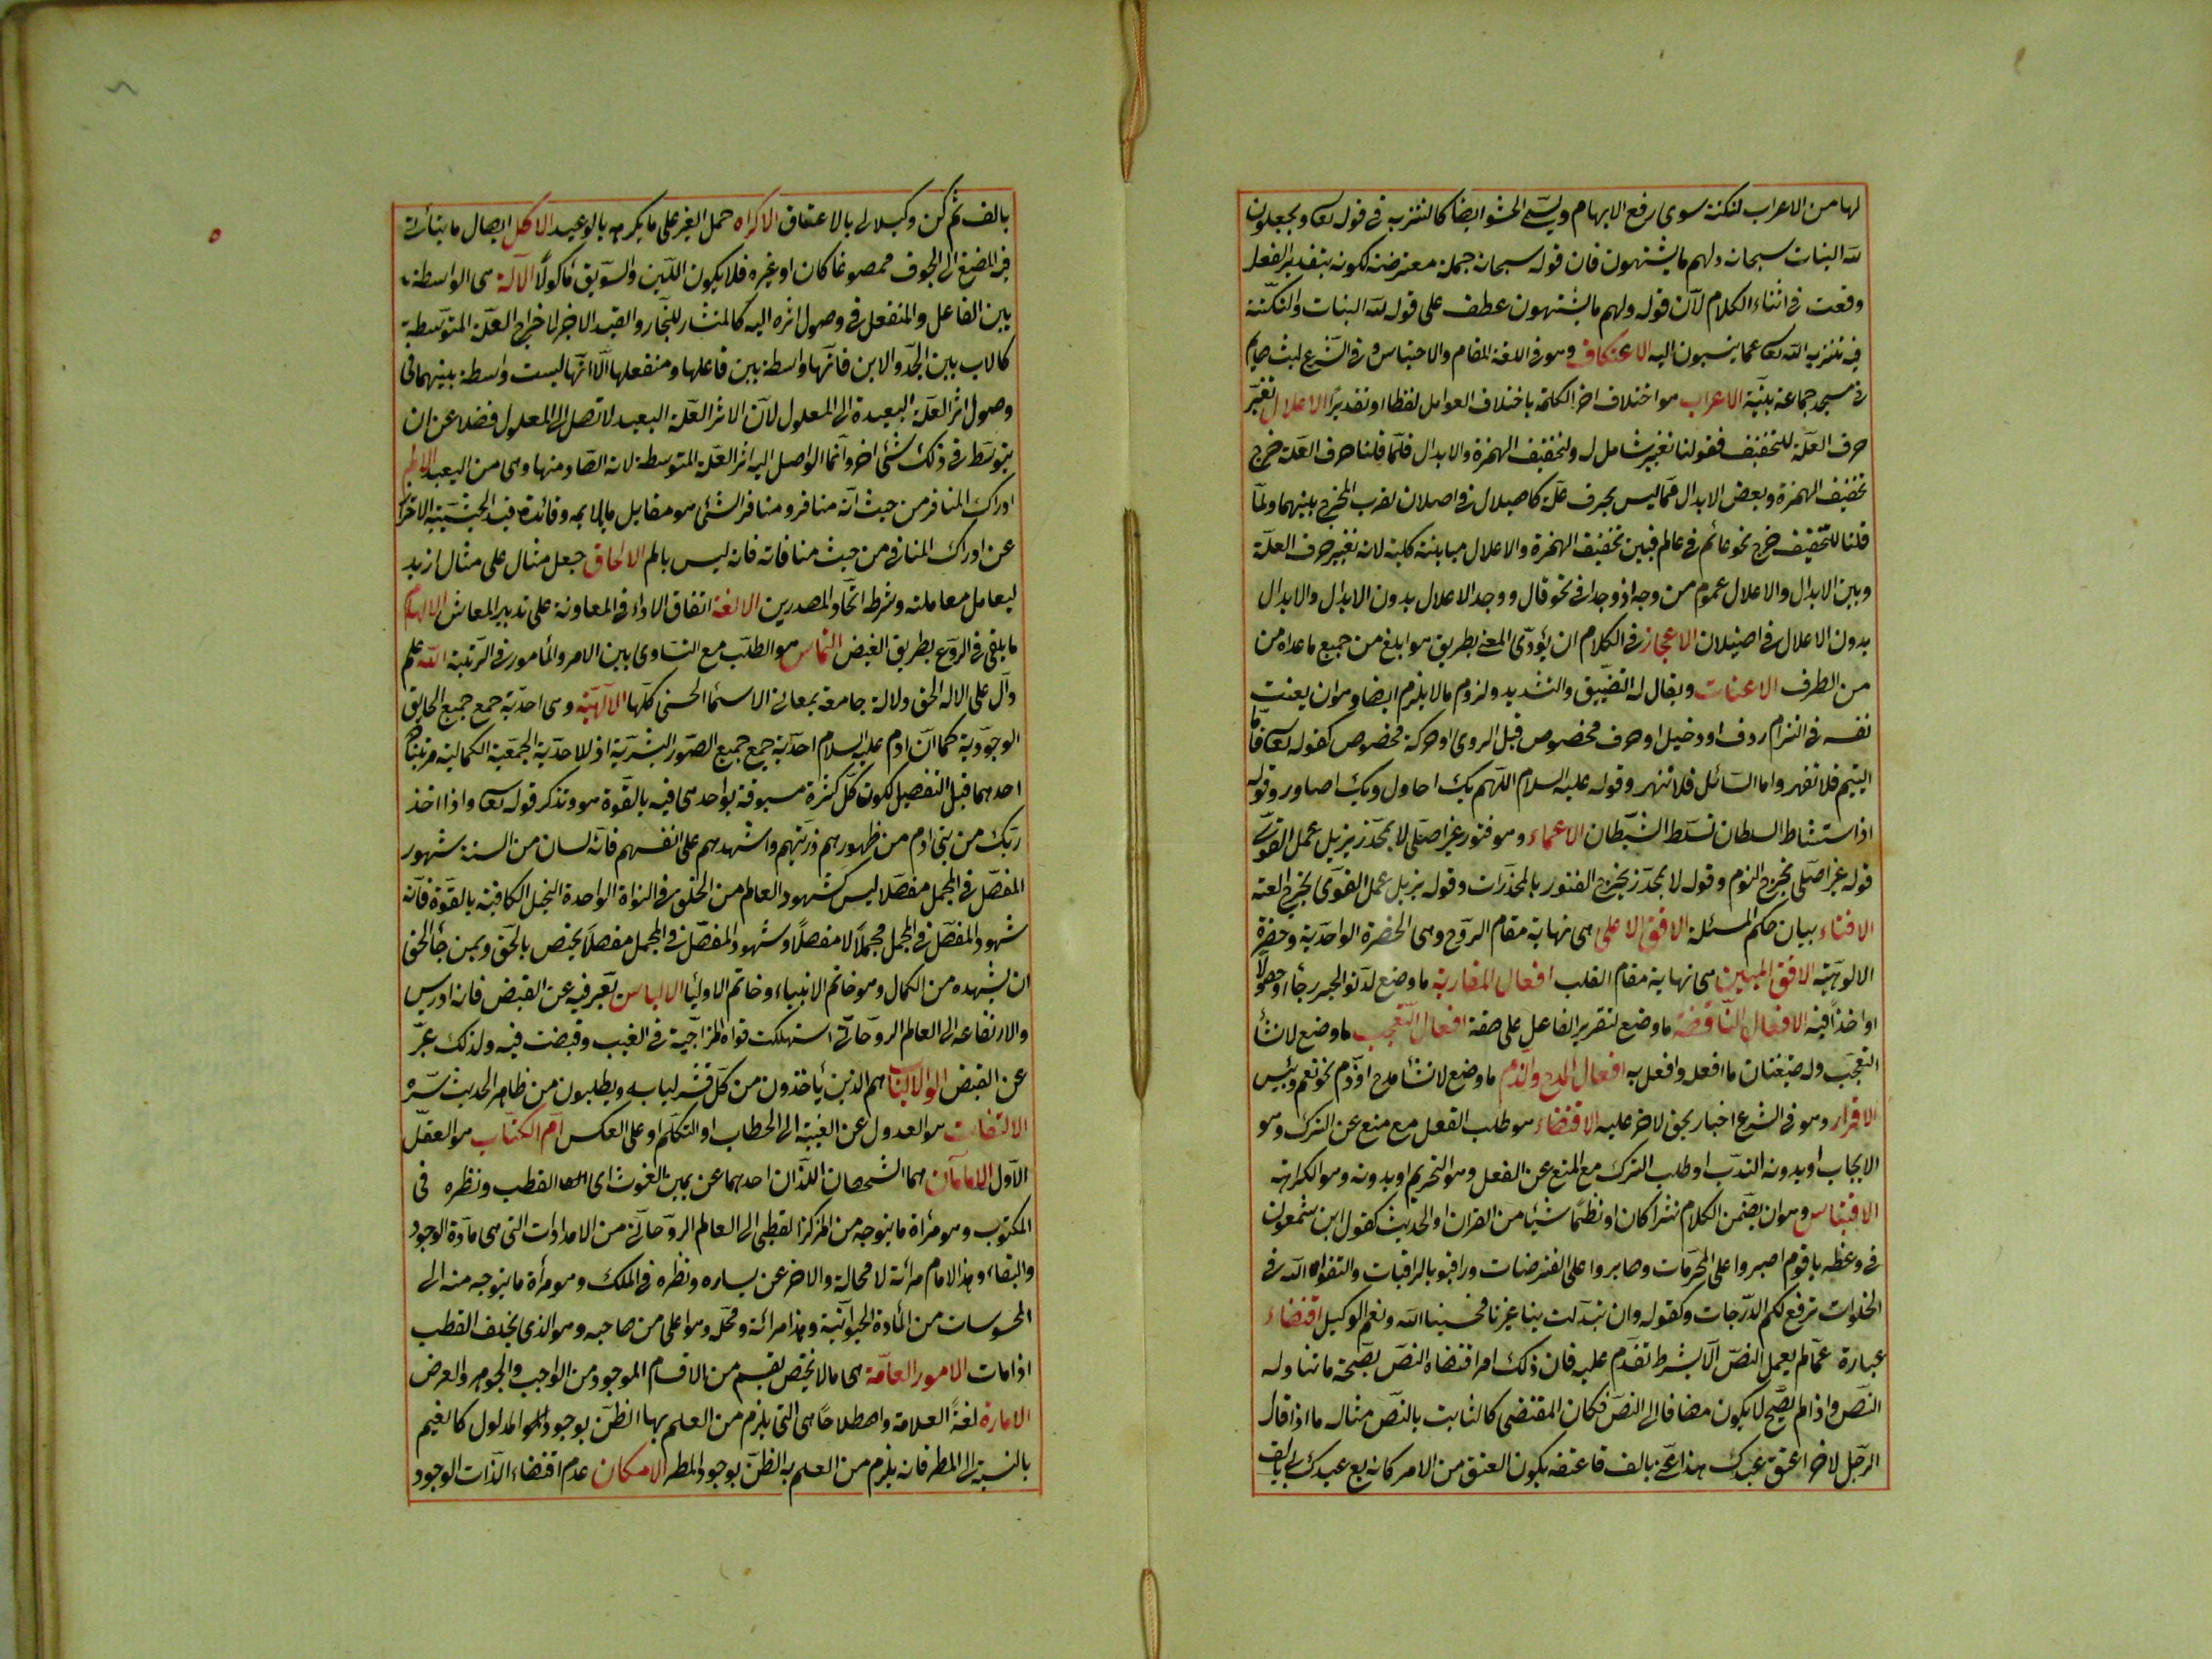 لها من الاعراب لنكتة سوى رفع الابهام ويسمى الحشو ايضا كالتنزيه في قوله تعا ويجعلون
لله البنات سبحانه ولهم ما يشتهون فان قوله سبحانه جملة معترضة لكونه بتقدير الفعل
وقعت في اثناء الكلام لأن قوله ولهم ما يشتهون عطف على قوله لله البنات والنكتة
فيه تنزيه الله تعا عما ينسبون اليه الاعتكاف وهو في اللغة المقام والاحتباس وفي الشرع لبث صايم
في مسجد جماعة بنية الاعراب هو اختلاف اخر الكلمة باختلاف العوامل لفظا او تقديرا الاعلال تغيير
حرف العلة للتخفيف فقولنا تغيير شامل له ولتخفيف الهمزة والابدال فلما قلنا حرف العلة خرج
تخفيف الهمزة وبعض الابدال مما ليس بحرف علة كاصيلال في اصيلان لقرب المخرج بينهما ولما
قلنا للتخفيف خرج نحو عائم في عالم فبين تخفيف الهمزة والاعلال مباينة كلية لانه تغيير حرف العلة
وبين الابدال والاعلال عموم من وجه اذ وجدا في نحو قال ووجد الاعلال بدون الابدال والابدال
بدون الاعلال في اصيلان الاعجاز في الكلام ان يؤدى المعنى بطريق هو ابلغ من جميع ما عداه من
من الطرف الاعنات ويقال له التضييق والتشديد ولزوم ما لا يلزم ايضا وهو ان يعنت
نفسه في التزام ردف او دخيل او حرف مخصوص قبل الروى او حركة مخصوص كقوله تعا فاما
اليتيم فلا تقهر واما السائل فلا تنهر وقوله عليه السلام اللهم بك احاول وبك اصاور وقوله
اذا استشاط السلطان تسلط الشيطان الاغماء وهو فتور غير اصلى لا بمخدر يزيل عمل القوى
قوله غير اصلى يخرج النوم وقوله لا بمخدر يخرج الفتور بالمخدرات وقوله يزيل عمل القوى يخرج العته
الافتاء بيان حكم المسئلة الافق الاعلى هى نهاية مقام الروح وهى الحضرة الواحدية وحضرة
الالوهية الافق المبين هى نهاية مقام القلب افعال المقاربة ما وضع لدنو الخبر رجأ او حصولا
او اخذا فيه الافعال الناقصة ما وضع لتقرير الفاعل على صفة افعال التعجب ما وضع لانشأ
التعجب وله صيغتان ما افعله وافعل به افعال المدح والذم ما وضع لانشأ مدح او ذم نحو نعم وبئس
الاقرار وهو في الشرع اخبار بحق لاخر عليه الاقتضاء هو طلب الفعل مع منع عن الترك وهو
الايجاب او بدونه الندب او طلب الترك مع المنع عن الفعل وهو التحريم او بدونه وهو الكراهة
الاقتباس وهو ان يضمن الكلام نثرا كان او نظما شيئا من القران او الحديث كقول ابن شمعون
في وعظه يا قوم اصبروا على المحرمات وصابروا على المفترضات ورابقو بالراقبات والتقوا الله في
الخلوات ترفع لكم الدرجات وكقوله وان تبدلت بنا غيرنا فحسبنا الله ونعم الوكيل اقتضاء
عبارة عما لم يعمل النص الا بشرط تقدم عليه فان ذلك امر اقتضاه النص بصحة ما تناوله
النص واذا لم يصح لا يكون مضافا الى النص فكان المقتضى كالثابت بالنص مثاله ما اذا قال
الرجل لاخر اعتق عبدك هذا عنى بالف فاعتقه يكون العتق من الامر كانه بع عبدك لى بالف
بالف ثم كن وكيلا لى بالاعتاق الاكراه حمل الغير على ما يكرهه بالوعيد الاكل ايصال ما يتأتى
فيه المضغ الى الجوف ممصوغا كان او غيره فلا يكون اللبن والسويق مأكولا الآلة هى الواسطة
بين الفاعل والمنفعل في وصول اثره اليه كالمنشار للنجار والقيد الاخير لاخراج العلة المتوسطة
كالاب بين الجد والابن فانها واسطة بين فاعلها ومنفعلها الا انها ليست واسطة بينهما في
وصول اثر العلة البعيدة الى المعلول لأن الاثر العلة البعيد لا تصل الى المعلول فضلا عن ان
يتوسط في ذلك شئ اخر وانما الواصل اليه اثر العلة المتوسطة لانه الصادر منها وهى من البعيد الالم
ادراك المنافر من حيث انه منافر ومنافر الشئ هو مقابل ما يلايمه وفائدة قيد الحيثية الاحتراز
عن ادراك المنافي من حيث منافاته فانه ليس بالم الالحاق جعل مثال على مثال ازيد
ليعامل معاملته وشرطه اتحاد المصدرين الالفة اتفاق الاداء في المعاونة على تدبير المعاش الالهام
ما يلقى في الروع بطريق الفيض التماس هو الطلب مع التساوى بين الامر والمأمور في الرتبة الله علم
دآل على الاله الحق دلالة جامعة بمعانى الاسماء الحسنى كلها الآلهية وهى احدية جمع جميع الحقايق
الوجودية كما ان ادم عليه السلام احدية جمع جميع الصور البشرية اذ للاحدية الجمعية الكمالية مرتبتان
احدهما قبل التفصيل لكون كل كثرة مسبوقة بواحد هى فيه بالقوة هو وتذكر قوله تعا واذا اخذ
ربك من بنى ادم من ظهورهم ذريتهم واشهدهم على انفسهم فانه لسان من السنة شهور
المفصل في المجمل مفصلا ليس كشهود العالم من الخلق في النواة الواحدة النخيل الكافية بالقوة فانه
شهود المفصل في المجمل مجملا لا مفصلا وشهود المفصل في المجمل مفصلا يختص بالحق وبمن جأ الحق
ان يشهده من الكمال وهو خاتم الانبياء وخاتم الاوليأ الالياس تعبر فيه عن القبض فانه ادريس
والارتفاعه الى العالم الروحانى استهلكت قواه المزاجية في الغيب وقبضت فيه ولذلك عبر
عن القبض الوالالباب هم الذين يأخذون من كل قشر لبابه ويطلبون من ظاهر الحديث سره
الالتفات هو العدول عن الغيبة الى الخطاب او التكلم او على العكس ام الكتاب هو العقل
الاول الامامان هما الشخصان اللذان احدهما عن يمين الغوث اى القطب ونظره في
المكتوب وهو مرأة ما يتوجه من المركز القطبى الى العالم الروحانى من الامدادات التى هى مآدة الوجود
والبقاء وهذ الامام مرأته لا محالة والاخر عن يساره ونظره في الملك وهو مرأة ما يتوجه منه الى
المحسوسات من المأدة الحيوانية وهذا مرائة ومحله وهو اعلى من صاحبه وهو الذى يخلف القطب
اذا مات الامور العامة هى ما لا يختص بقسم من الاقسام الموجود من الواجب والجوهر والعرض
الامارة لغة العلامة واصطلاحا هى التى يلزم من العلم بها الظن بوجود المدلول كالغيم
بالنسبة الى المطر فانه يلزم من العلم به الظن بوجود المطر الامكان عدم اقتضاء الذات الوجود